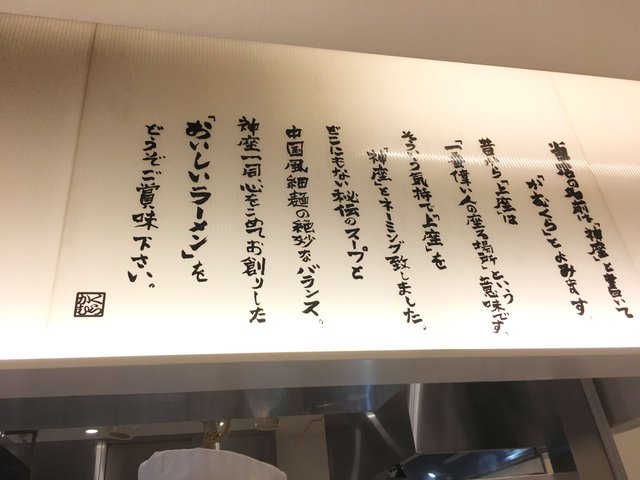 当店の名前は、「神座」と書いて
「かむくら」とよみます。
昔から「上座」は
「一番偉い人の座る場所」という意味です。
そういう気持で「上座」を
「神座」とネーミング致しました。
どこにもない秘伝のスープと
中国風細麺の絶妙なバランス。
神座一同、心をこめてお創りした
「おいしいラーメン」を
どうぞご賞味下さい。
かむくら